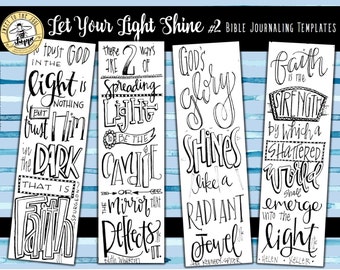 Let Your Light Shine #2 Bible Journaling Templates
trust GOD
in the
light is
NOTHING
BUT
trust Him
in the
DARK
THAT IS
Faith
SPURGEON
There
are 2 WAYS
OF
Spreading
Light
TO BE THE
CANDLE
OR THE
MIRROR that
Reflects
IT.
EDITH WHARTON
GOD'S
glory
SHINES
like a
RADIANT
Jewel
Faith
IS the
STRENGTH
by which a
SHATTERED
World
shall
emerge
into the
Light
HELEN KELLER